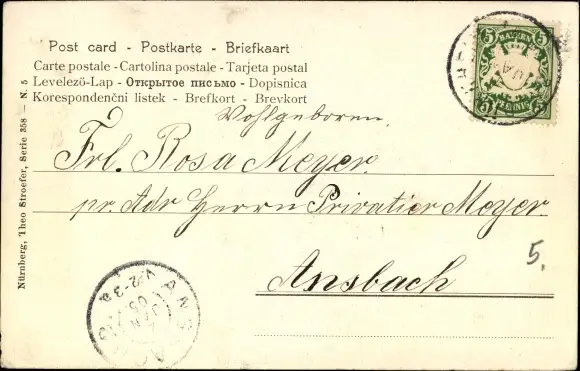 Post card - Postkarte - Briefkaart
Carte postale - Cartolina postale - Tarjeta postal
Levelező-Lap - Открытое письмо - Dopisnica
Korespondenční listek - Brefkort - Brevkort
Wohlgeboren
Frl. Rosa Meyer.
pr. Adr Herrn Privatier Meyer.
Ansbach
5.
Nürnberg, Theo Stroefer, Serie 358 — N. 5
5 BAYERN 5
5 PFENNIG 5
ANSBACH